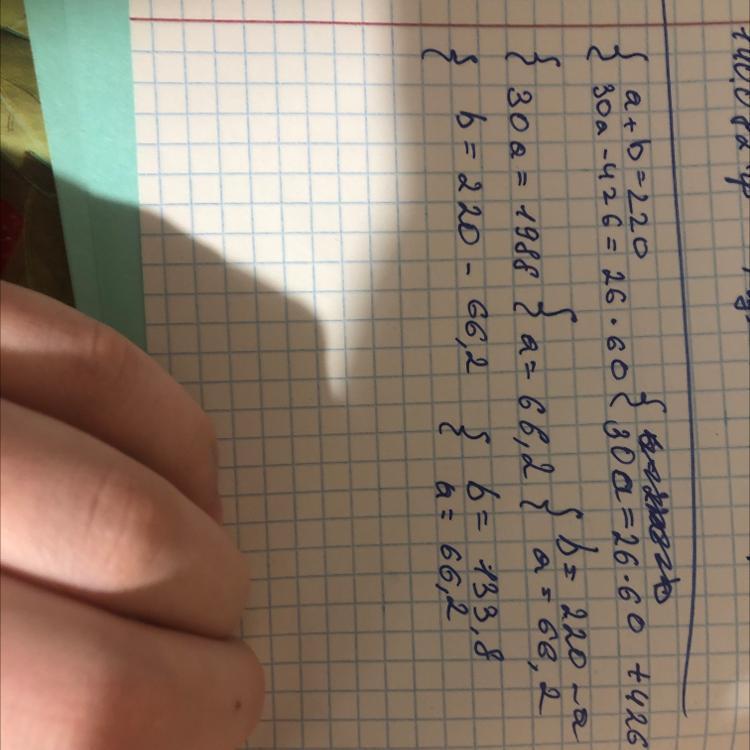 { a + b = 220
30a - 426 = 26 · 60 { 30a = 26 · 60 + 426
{ 30a = 1988 { a = 66,2 { b = 220 - a
a = 66,2
{ b = 220 - 66,2 { b = 133,8
a = 66,2